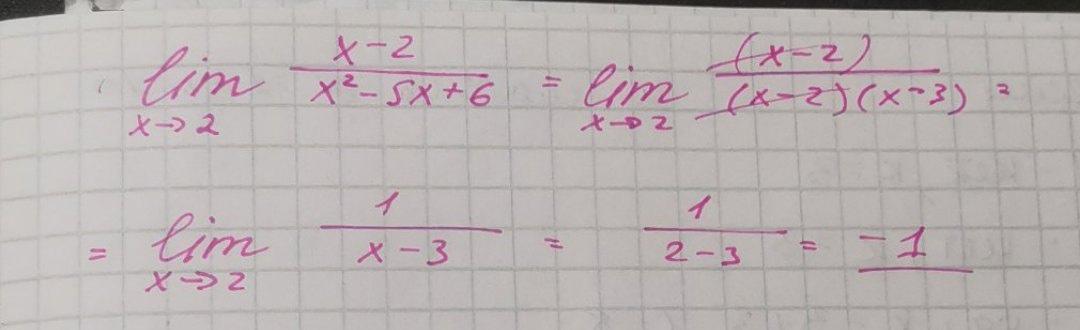 lim x→2 (x-2)/(x²-5x+6) = lim x→2 (x-2)/((x-2)(x-3)) =
= lim x→2 1/(x-3) = 1/(2-3) = -1